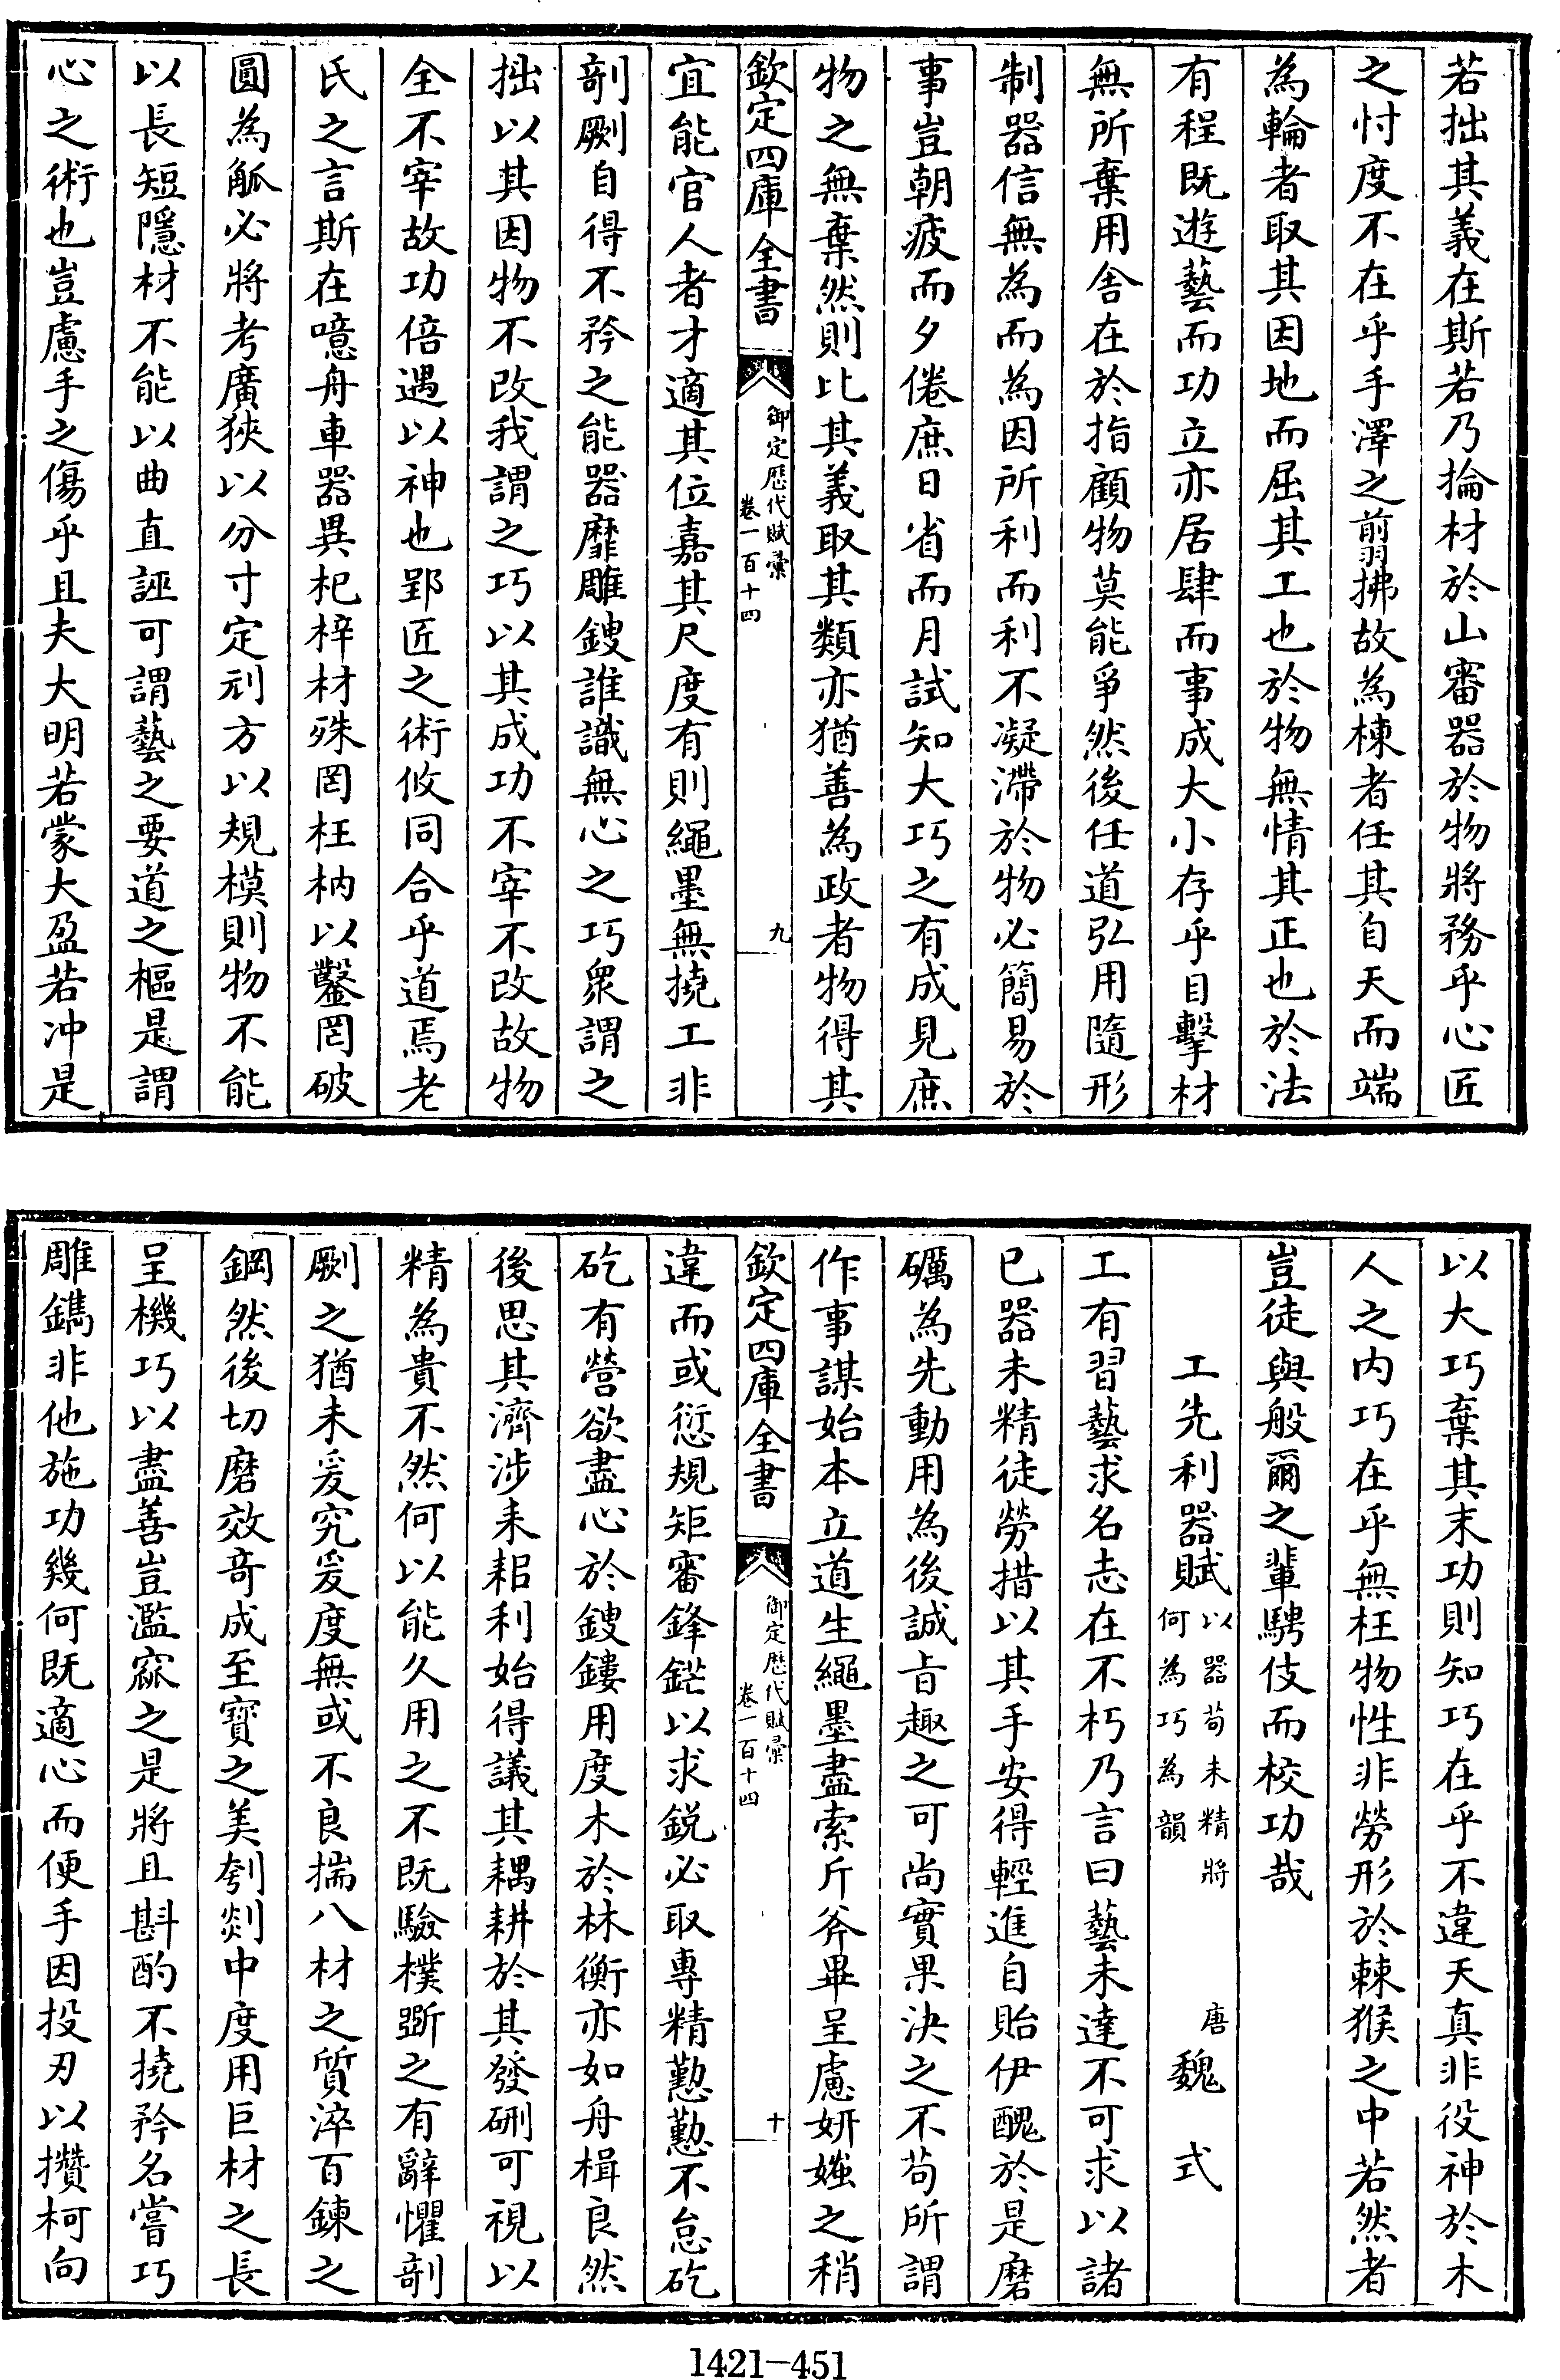 若拙其義在斯若乃掄材於山審器於物將務乎心匠
之忖度不在乎手澤之翦拂故為棟者任其自天而端
為輪者取其因地而屈其工也於物無情其正也於法
有程既遊藝而功立亦居肆而事成大小存乎目擊材
無所棄用舍在於指顧物莫能爭然後任道弘用隨形
制器信無為而為因所利而利不凝滯於物必簡易於
事豈朝疲而夕倦庶日省而月試知大巧之有成見庶
物之無棄然則比其義取其類亦猶善為政者物得其
欽定四庫全書
御定歷代賦彙
卷一百十四
九
宜能官人者才適其位嘉其尺度有則繩墨無撓工非
剞劂自得不矜之能器靡雕鎪誰識無心之巧衆謂之
拙以其因物不改我謂之巧以其成功不宰不改故物
全不宰故功倍遇以神也郢匠之術攸同合乎道焉老
氏之言斯在噫舟車器異杞梓材殊罔枉枘以鑿罔破
圓為觚必將考廣狹以分寸定刓方以規模則物不能
以長短隱材不能以曲直誣可謂藝之要道之樞是謂
心之術也豈慮手之傷乎且夫大明若蒙大盈若冲是
以大巧棄其末功則知巧在乎不違天真非役神於木
人之内巧在乎無枉物性非勞形於棘猴之中若然者
豈徒與般爾之輩騁伎而校功哉
工先利器賦以器苟未精將何為巧為韻 唐魏式
工有習藝求名志在不朽乃言曰藝未達不可求以諸
已器未精徒勞措以其手安得輕進自貽伊醜於是磨
礪為先動用為後誠㫖趣之可尚實果決之不苟所謂
作事謀始本立道生繩墨盡索斤斧畢呈慮妍媸之稍
欽定四庫全書
御定歷代賦彙
卷一百十四
十
違而或愆規矩審鋒鋩以求鋭必取專精懃懃不怠矻
矻有營欲盡心於鎪鏤用度木於林衡亦如舟楫良然
後思其濟涉耒耜利始得議其耦耕於其發硎可視以
精為貴不然何以能久用之不既驗樸斵之有辭懼剞
劂之猶未爰究爰度無或不良揣八材之質淬百鍊之
鋼然後切磨效竒成至寶之美刳剡中度用巨材之長
呈機巧以盡善豈濫窳之是將且斟酌不撓矜名嘗巧
雕鐫非他施功幾何既適心而便手因投刃以攢柯向
1421—451